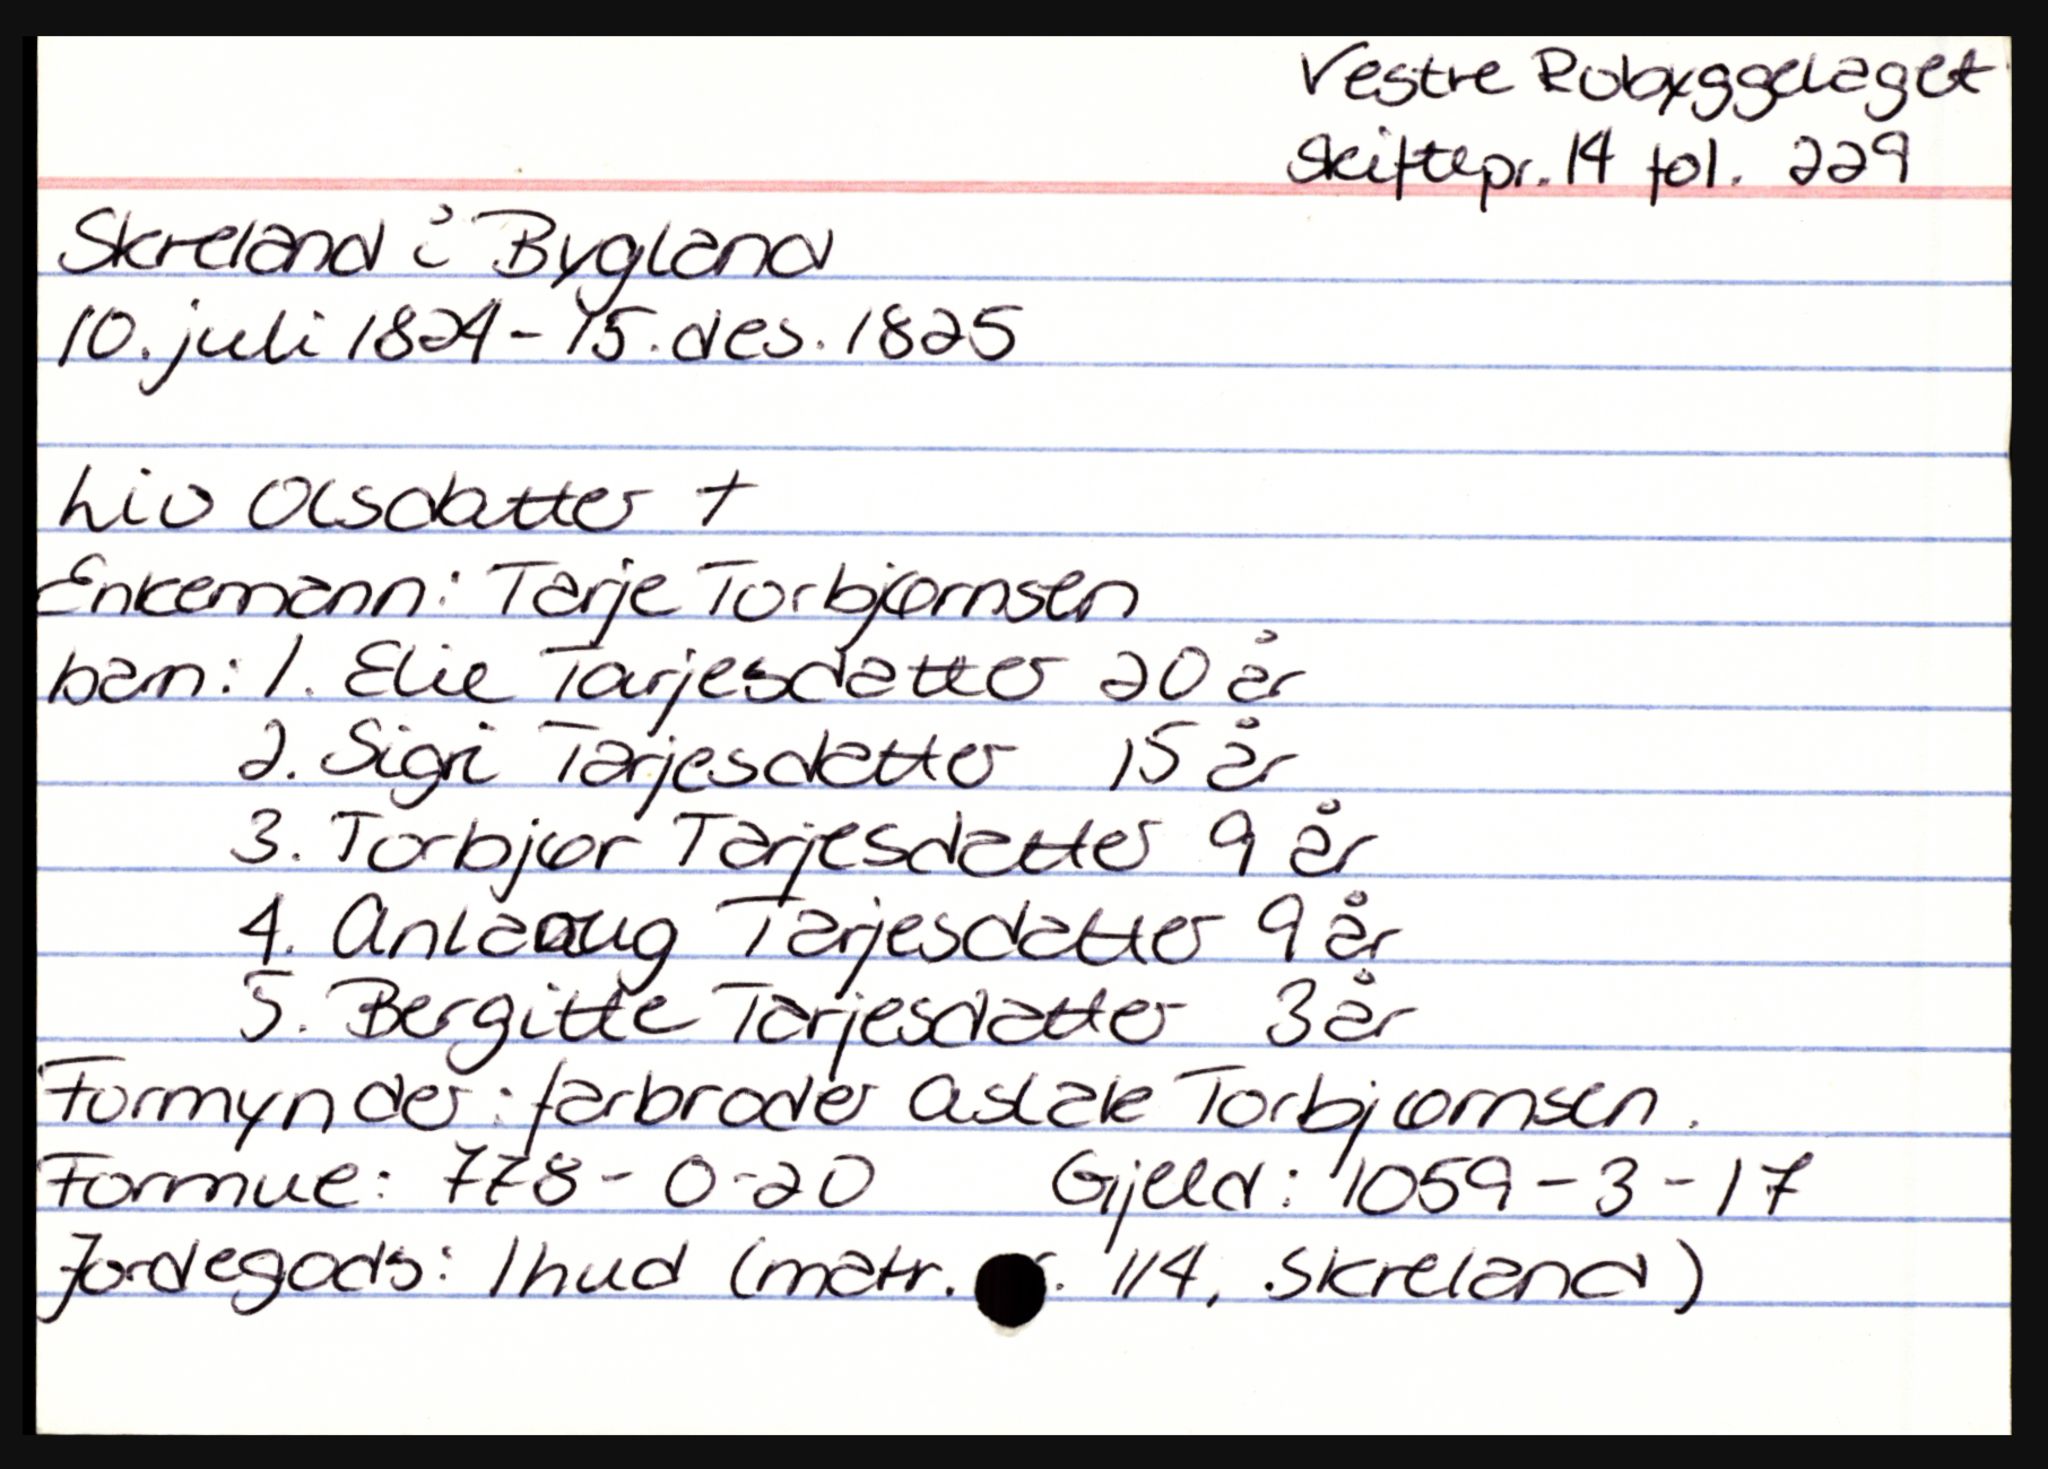 Vestre Robyggelaget
Skiftepr. 14 fol. 229
Skreland i Bygland
10. juli 1824 - 15. des. 1825
Liv Olsdatter +
Enkemann: Tarje Torbjørnsen
barn: 1. Elie Tarjesdatter 20 år
2. Sigri Tarjesdatter 15 år
3. Torbjør Tarjesdatter 9 år
4. Anlaug Tarjesdatter 9 år
5. Bergitte Tarjesdatter 3 år
Formynder: farbroder Aslak Torbjørnsen.
Formue: 778 - 0 - 20 Gjeld: 1059 - 3 - 17
Jordegods: 1 hud (matr. 114, Skreland)